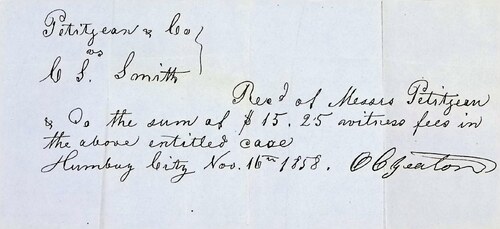 Petitjean & Co
vs
C S. Smith
Recd of Messrs Petitjean
& Co the sum of $15.25 witness fees in
the above entitled case
Humbug City Nov. 16th 1858. O C Yeaton